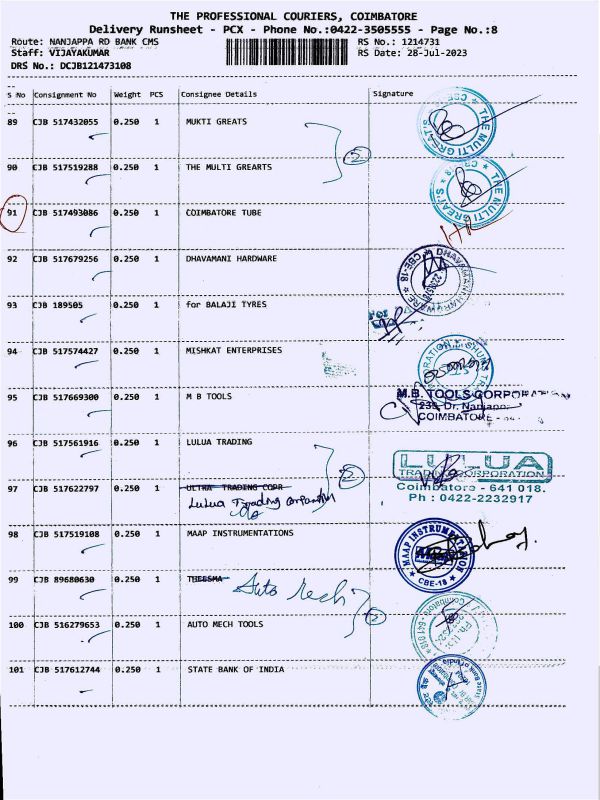 THE PROFESSIONAL COURIERS, COIMBATORE
Delivery Runsheet - PCX - Phone No.:0422-3505555 - Page No.:8
Route: NANJAPPA RD BANK CMS RS No.: 1214731
Staff: VIJAYAKUMAR RS Date: 28-Jul-2023
DRS No.: DCJB121473108
S No Consignment No Weight PCS Consignee Details Signature
89 CJB 517432055 0.250 1 MUKTI GREATS
THE MULTI GREAT'S
2
90 CJB 517519288 0.250 1 THE MULTI GREARTS
THE MULTI GREAT'S
91 CJB 517493086 0.250 1 COIMBATORE TUBE
92 CJB 517679256 0.250 1 DHAVAMANI HARDWARE
DHAVAMANI HARDWARE CBE-18
93 CJB 189505 0.250 1 for BALAJI TYRES
For
94 CJB 517574427 0.250 1 MISHKAT ENTERPRISES
95 CJB 517669300 0.250 1 M B TOOLS
M.B. TOOLS CORPORATION
COIMBATORE -
96 CJB 517561916 0.250 1 LULUA TRADING
LULUA
TRADING CORPORATION
Coimbatore - 641 018.
Ph : 0422-2232917
2
97 CJB 517622797 0.250 1 ULTRA TRADING COPR
Lulua Trading Corporation
98 CJB 517519108 0.250 1 MAAP INSTRUMENTATIONS
MAAP INSTRUMENTATION
CBE-18
99 CJB 89680630 0.250 1 THEESMA Auto Mech
2
100 CJB 516279653 0.250 1 AUTO MECH TOOLS
101 CJB 517612744 0.250 1 STATE BANK OF INDIA